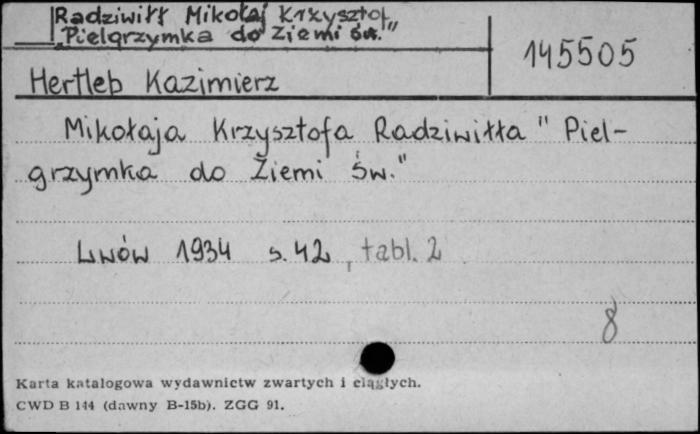 Radziwiłł Mikołaj Krzysztof
"Pielgrzymka do Ziemi św."
145505
Hertleb Kazimierz
Mikołaja Krzysztofa Radziwiłła "Piel-
grzymka do Ziemi Św."
Lwów 1934 s. 42, tabl. 2
8
Karta katalogowa wydawnictw zwartych i ciągłych.
CWD B 144 (dawny B-15b). ZGG 91.